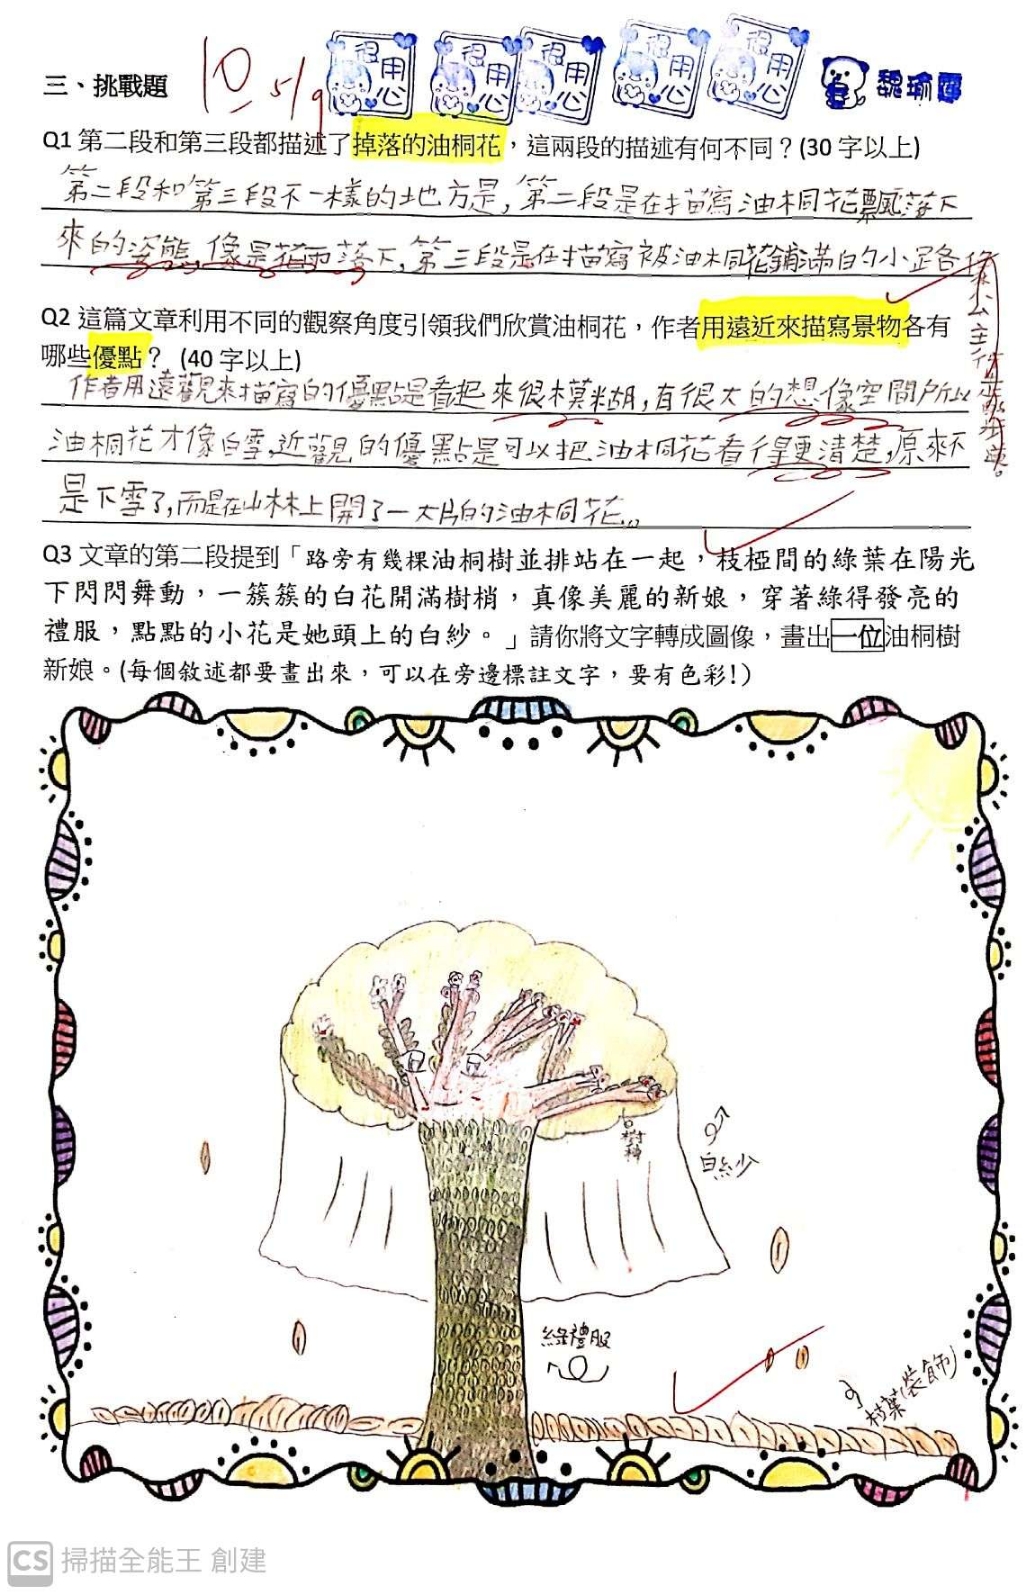 三、挑戰題
10 5/9
很用心 很用心 很用心 很用心 很用心
Q1 第二段和第三段都描述了掉落的油桐花，這兩段的描述有何不同？(30 字以上)
第二段和第三段不一樣的地方是，第二段是在描寫油桐花飄落下
來的姿態，像是花雨落下，第三段是在描寫被油桐花鋪滿白的小路，像公主
Q2 這篇文章利用不同的觀察角度引領我們欣賞油桐花，作者用遠近來描寫景物各有
哪些優點？ (40 字以上)
作者用遠觀來描寫的優點是看起來很模糊，有很大的想像空間所以
油桐花才像白雪，近觀的優點是可以把油桐花看得更清楚，原來不
是下雪了，而是在山林上開了一大片的油桐花。
Q3 文章的第二段提到「路旁有幾棵油桐樹並排站在一起，枝椏間的綠葉在陽光
下閃閃舞動，一簇簇的白花開滿樹梢，真像美麗的新娘，穿著綠得發亮的
禮服，點點的小花是她頭上的白紗。」請你將文字轉成圖像，畫出一位油桐樹
新娘。(每個敘述都要畫出來，可以在旁邊標註文字，要有色彩！)
白紗
綠禮服
樹葉(裝飾)
CS 掃描全能王 創建